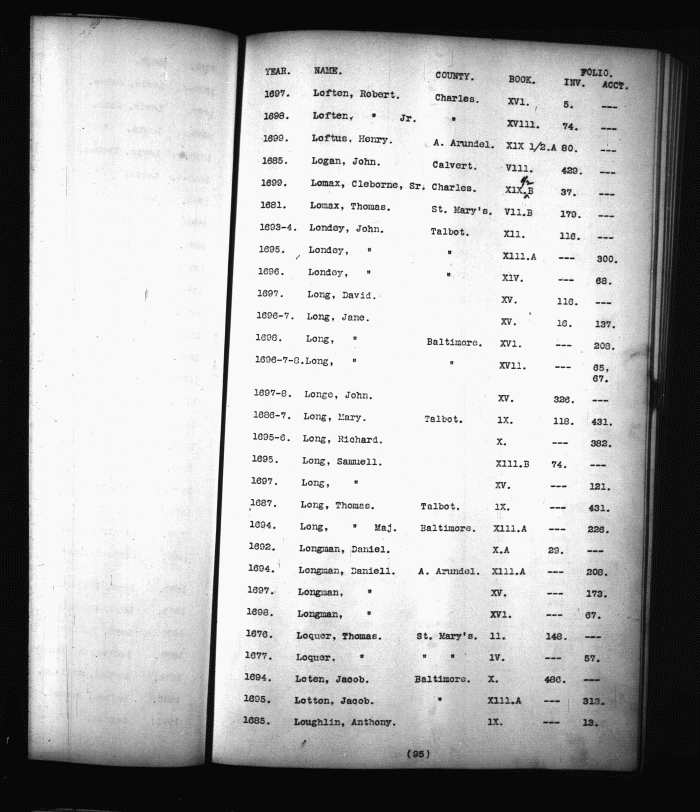 FOLIO.
YEAR. NAME. COUNTY. BOOK. INV. ACCT.
1697. Loften, Robert. Charles. XV1. 5. ---
1698. Loften, " Jr. " XV111. 74. ---
1699. Loftus, Henry. A. Arundel. X1X 1/2.A 80. ---
1685. Logan, John. Calvert. V111. 429. ---
1699. Lomax, Cleborne, Sr. Charles. X1X 1/2.B 37. ---
1681. Lomax, Thomas. St. Mary's. V11.B 179. ---
1693-4. Londey, John. Talbot. X11. 116. ---
1695. Londey, " " X111.A --- 300.
1696. Londey, " " X1V. --- 68.
1697. Long, David. XV. 116. ---
1696-7. Long, Jane. XV. 16. 137.
1698. Long, " Baltimore. XV1. --- 208.
1696-7-8. Long, " " XV11. --- 65,
67.
1697-8. Longe, John. XV. 326. ---
1686-7. Long, Mary. Talbot. 1X. 118. 431.
1695-6. Long, Richard. X. --- 382.
1695. Long, Samuell. X111.B 74. ---
1697. Long, " XV. --- 121.
1687. Long, Thomas. Talbot. 1X. --- 431.
1694. Long, " Maj. Baltimore. X111.A --- 226.
1692. Longman, Daniel. X.A 29. ---
1694. Longman, Daniell. A. Arundel. X111.A --- 208.
1697. Longman, " XV. --- 173.
1698. Longman, " XV1. --- 67.
1676. Loquer, Thomas. St. Mary's. 11. 148. ---
1677. Loquer, " " " 1V. --- 57.
1694. Loten, Jacob. Baltimore. X. 486. ---
1695. Lotton, Jacob. " X111.A --- 313.
1685. Loughlin, Anthony. 1X. --- 13.
(95)